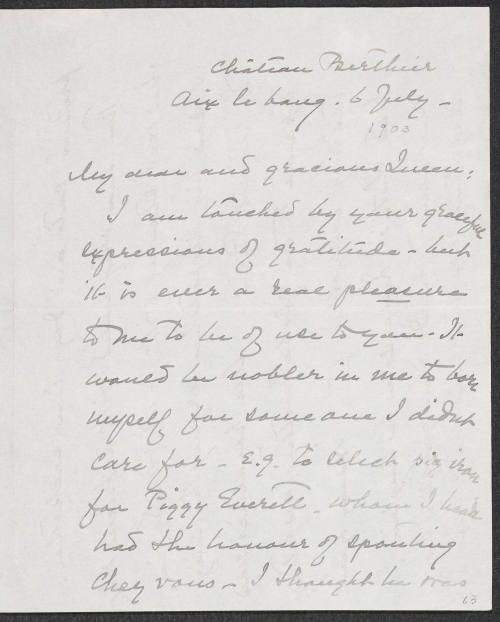 Château Berthier
Aix le bang. 6 July -
1903
My dear and gracious Queen;
I am touched by your graceful
expressions of gratitude - but
it is ever a real pleasure
to me to be of use to you - It
would be nobler in me to bore
myself for someone I didnt
care for - e.g. to select pig iron
for Piggy Everett - whom I have
had the honour of
chez vous - I thought he was
63